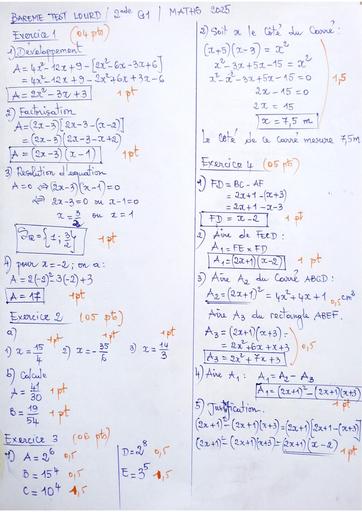 BAREME TEST LOURD / 2nde G1 / MATHS 2025
Exercice 1 (04 pts)
1) Développement
A = 4x² - 12x + 9 - [2x² - 6x - 3x + 6]
= 4x² - 12x + 9 - 2x² + 6x + 3x - 6
A = 2x² - 3x + 3 1pt
2) Factorisation
A = (2x-3)[2x-3-(x-2)]
= (2x-3)(2x-3-x+2)
A = (2x-3)(x-1) 1pt
3) Résolution d'équation
A = 0 ⇔ (2x-3)(x-1) = 0
⇔ 2x-3 = 0 ou x-1 = 0
x = 3/2 ou x = 1
S_R = {1; 3/2} 1pt
4) pour x = -2; on a:
A = 2(-2)² - 3(-2) + 3
A = 17 1pt
Exercice 2 (05 pts)
a)
1) x = 15/4 1pt 2) x = -35/6 1pt 3) x = 14/3 1pt
b) Calcule
A = 41/30 1pt
B = 19/54 1pt
Exercice 3 (06 pts)
1) A = 2⁶ 0,5
B = 15⁴ 0,5
C = 10⁴ 1,5
D = 2⁸ 0,5
E = 3⁵ 1,5
2) Soit x le côté du Carré:
(x+5)(x-3) = x²
x² - 3x + 5x - 15 = x²
x² - x² - 3x + 5x - 15 = 0
2x - 15 = 0
2x = 15
x = 7,5 m
1,5
Le côté de ce Carré mesure 7,5m
Exercice 4 (05 pts)
1) FD = BC - AF
= 2x+1 - (x+3)
= 2x+1 - x - 3
FD = x - 2 1pt
2) Aire de FECD:
A₁ = FE × FD
A₁ = (2x+1)(x-2) 1pt
3) Aire A₂ du Carré ABCD:
A₂ = (2x+1)² = 4x² + 4x + 1 cm² 0,5
Aire A₃ du rectangle ABEF.
A₃ = (2x+1)(x+3)
= 2x² + 6x + x + 3
A₃ = 2x² + 7x + 3
0,5
4) Aire A₁: A₁ = A₂ - A₃
A₁ = (2x+1)² - (2x+1)(x+3) 1pt
5) Justification.
(2x+1)² - (2x+1)(x+3) = (2x+1)[2x+1-(x+3)]
(2x+1)² - (2x+1)(x+3) = (2x+1)(x-2) 1pt